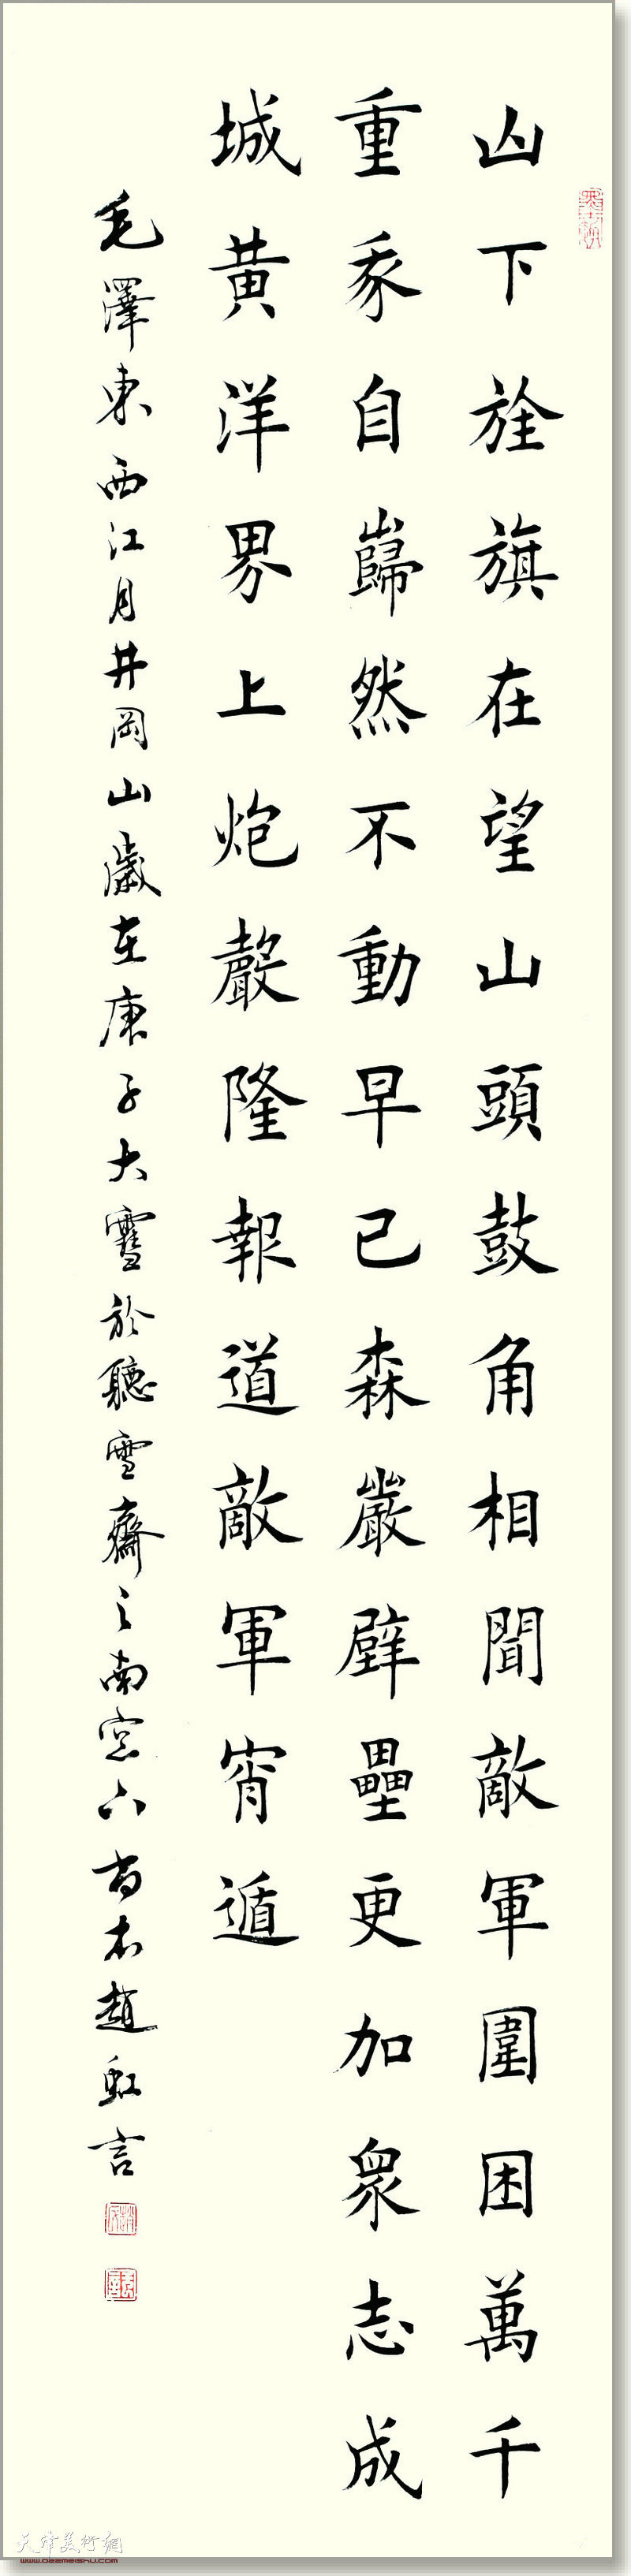 山下旌旗在望山頭鼓角相聞敵軍圍困萬千
重我自巋然不動早已森嚴壁壘更加眾志成
城黃洋界上炮聲隆報道敵軍宵遁
毛澤東西江月井岡山歲在庚子大雪於聽雪齋之南窓下古木趙虹言
天津美術網
www.022meishu.com